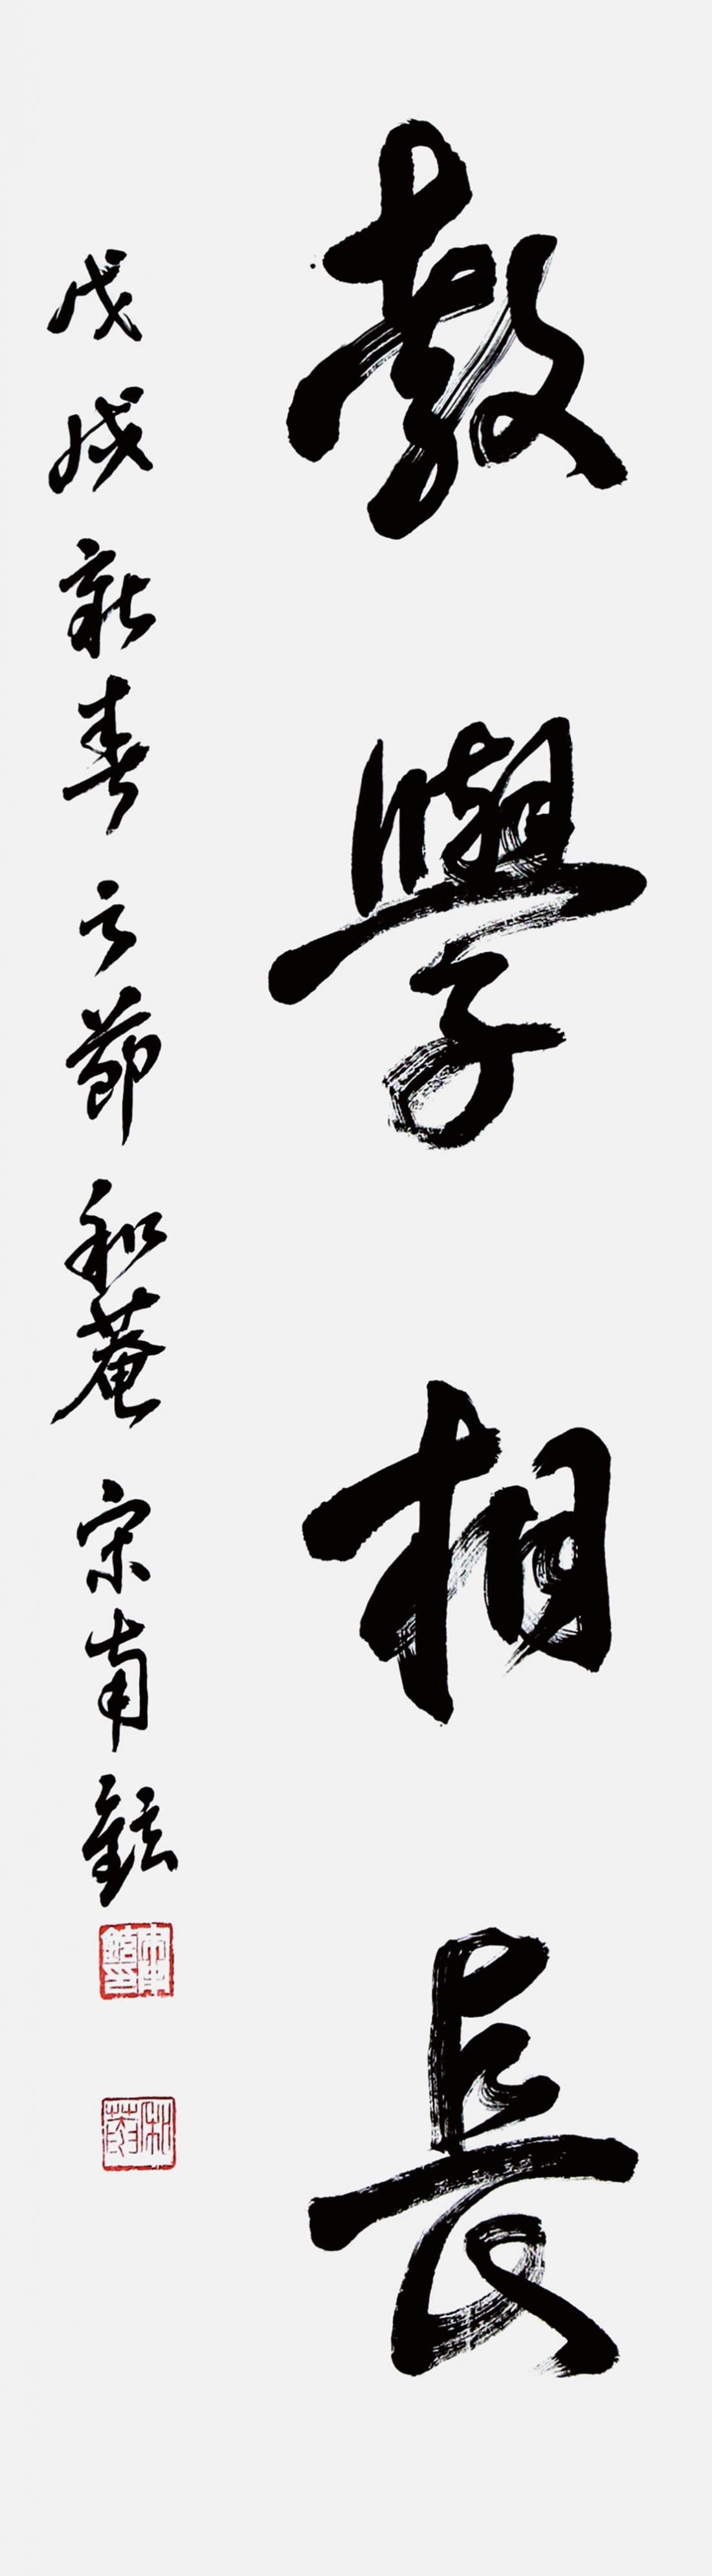 教學相長
戊戌新春之節和菴宋南鉉